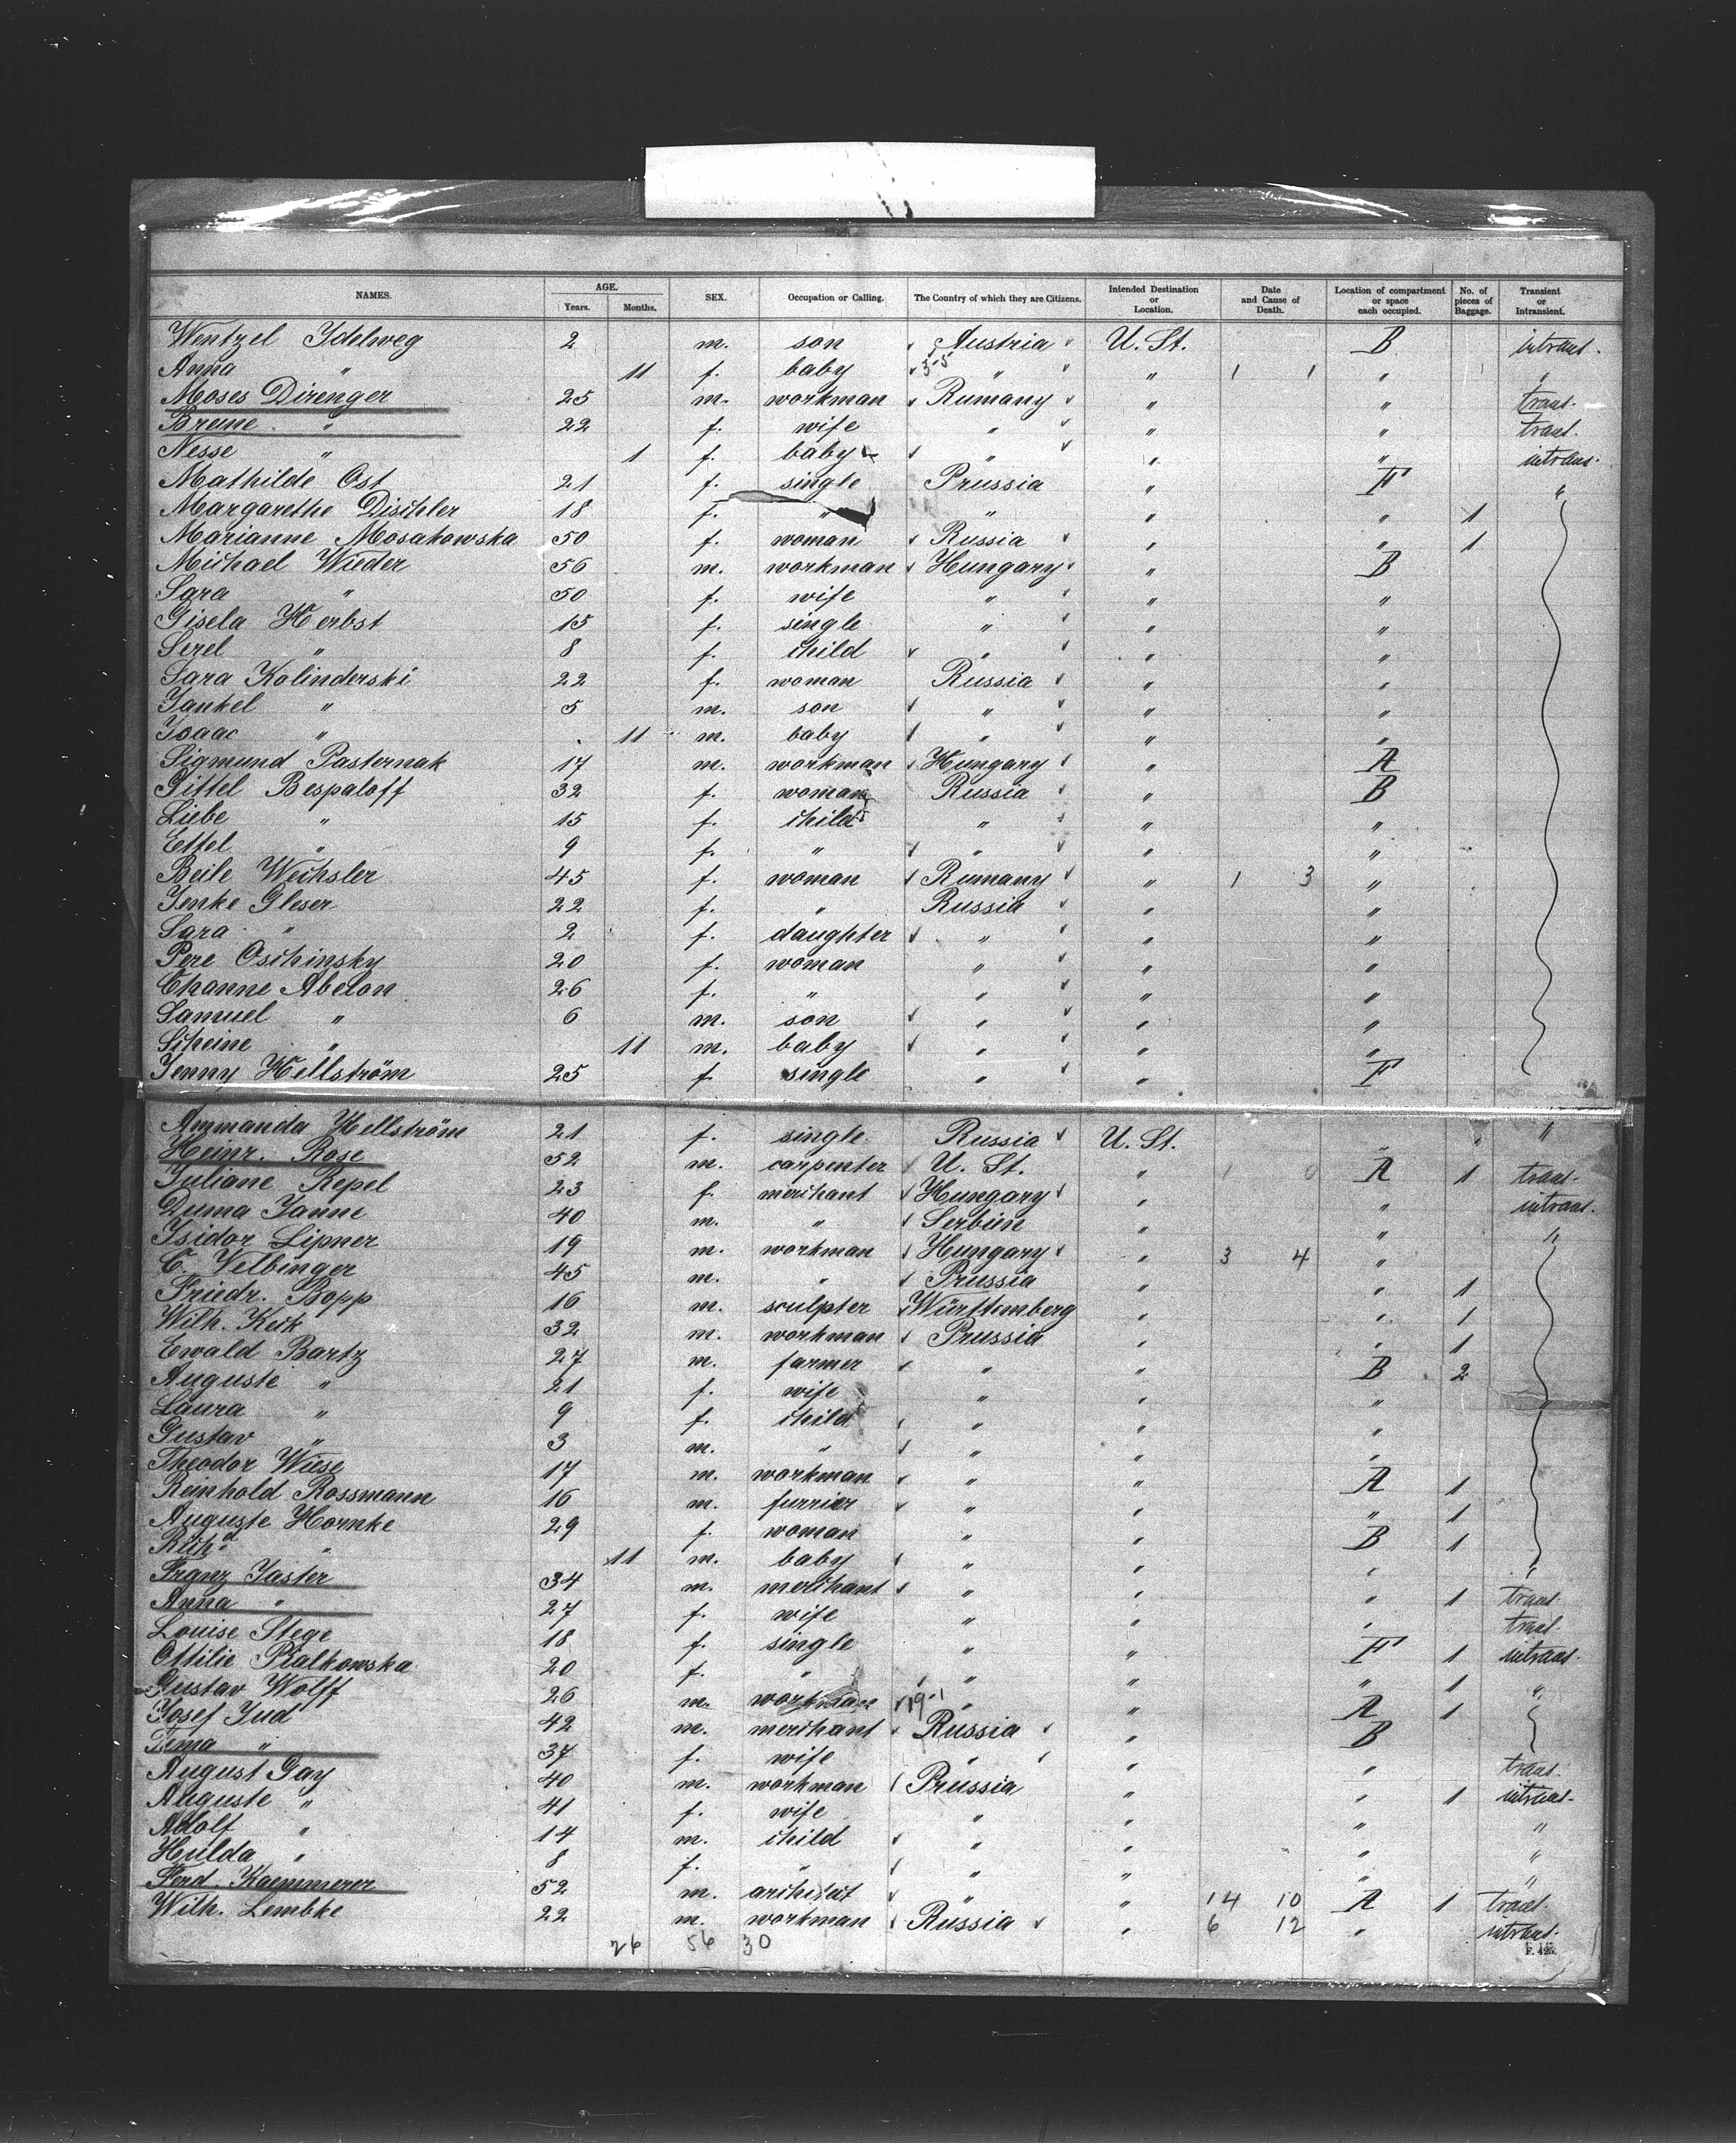 NAMES. AGE. Years. Months. SEX. Occupation or Calling. The Country of which they are Citizens. Intended Destination or Location. Date and Cause of Death. Location of compartment or space each occupied. No. of pieces of Baggage. Transient or Intransient.
Wentzel Idelweg 2 m. son Austria U. St. B intrans.
Anna " 11 f. baby 3-5 " " 1 1 " "
Moses Direnger 25 m. workman Rumany " " trans.
Breine " 22 f. wife " " " trans.
Nesse " 1 f. baby " " " intrans.
Mathilde Ost 21 f. single Prussia " F "
Margarethe Dischler 18 f. " " " " 1
Marianne Mosakowska 50 f. woman Russia " " 1
Michael Wieder 56 m. workman Hungary " B
Sara " 50 f. wife " " "
Gisela Herbst 15 f. single " " "
Serel " 8 f. child " " "
Sara Kolinderski 22 f. woman Russia " "
Jankel " 5 m. son " " "
Isaac " 11 m. baby " " "
Sigmund Pasternak 17 m. workman Hungary " A
Gittel Bespaloff 32 f. woman Russia " B
Liebe " 15 f. child " " "
Ettel " 9 f. " " " "
Beile Wechsler 45 f. woman Rumany " 1 3 "
Jenke Gleser 22 f. " Russia " "
Sara " 2 f. daughter " " "
Pere Oschinsky 20 f. woman " " "
Channe Abelon 26 f. " " " "
Samuel " 6 m. son " " "
Scheine " 11 m. baby " " "
Jenny Hellström 25 f. single " " F
Ammanda Hellström 21 f. single Russia U. St. " " "
Heinr. Rose 52 m. carpenter U. St. " 1 0 A 1 trans.
Juliane Repel 23 f. merchant Hungary " " intrans.
Duma Janne 40 m. " Serbien " " "
Isidor Lipner 19 m. workman Hungary " 3 4 "
C. Velbinger 45 m. " Prussia " " 1
Friedr. Bopp 16 m. sculpter Württemberg " " 1
Wilh. Keck 32 m. workman Prussia " " 1
Ewald Bartz 27 m. farmer " " B 2
Auguste " 21 f. wife " " "
Laura " 9 f. child " " "
Gustav " 3 m. " " " "
Theodor Wiese 17 m. workman " " A 1
Reinhold Rossmann 16 m. furrier " " " 1
Auguste Hornke 29 f. woman " " B 1
Richd " 11 m. baby " " " "
Franz Jaster 34 m. merchant " " " 1 trans.
Anna " 27 f. wife " " " trans.
Louise Stege 18 f. single " " F 1 intrans.
Ottilie Pialkowska 20 f. " " " " 1 "
Gustav Wolff 26 m. workman 19-1 " " A 1
Josef Jud 42 m. merchant Russia " B
" 37 f. wife " " " trans.
August Gay 40 m. workman Prussia " " 1 intrans.
Auguste " 41 f. wife " " " "
Adolf " 14 m. child " " " "
Hulda " 8 f. " " " " "
Ferd. Kaemmerer 52 m. architect " " 14 10 A 1 trans.
Wilh. Lembke 22 m. workman Russia " 6 12 " intrans.
26 56 30
F. 495.